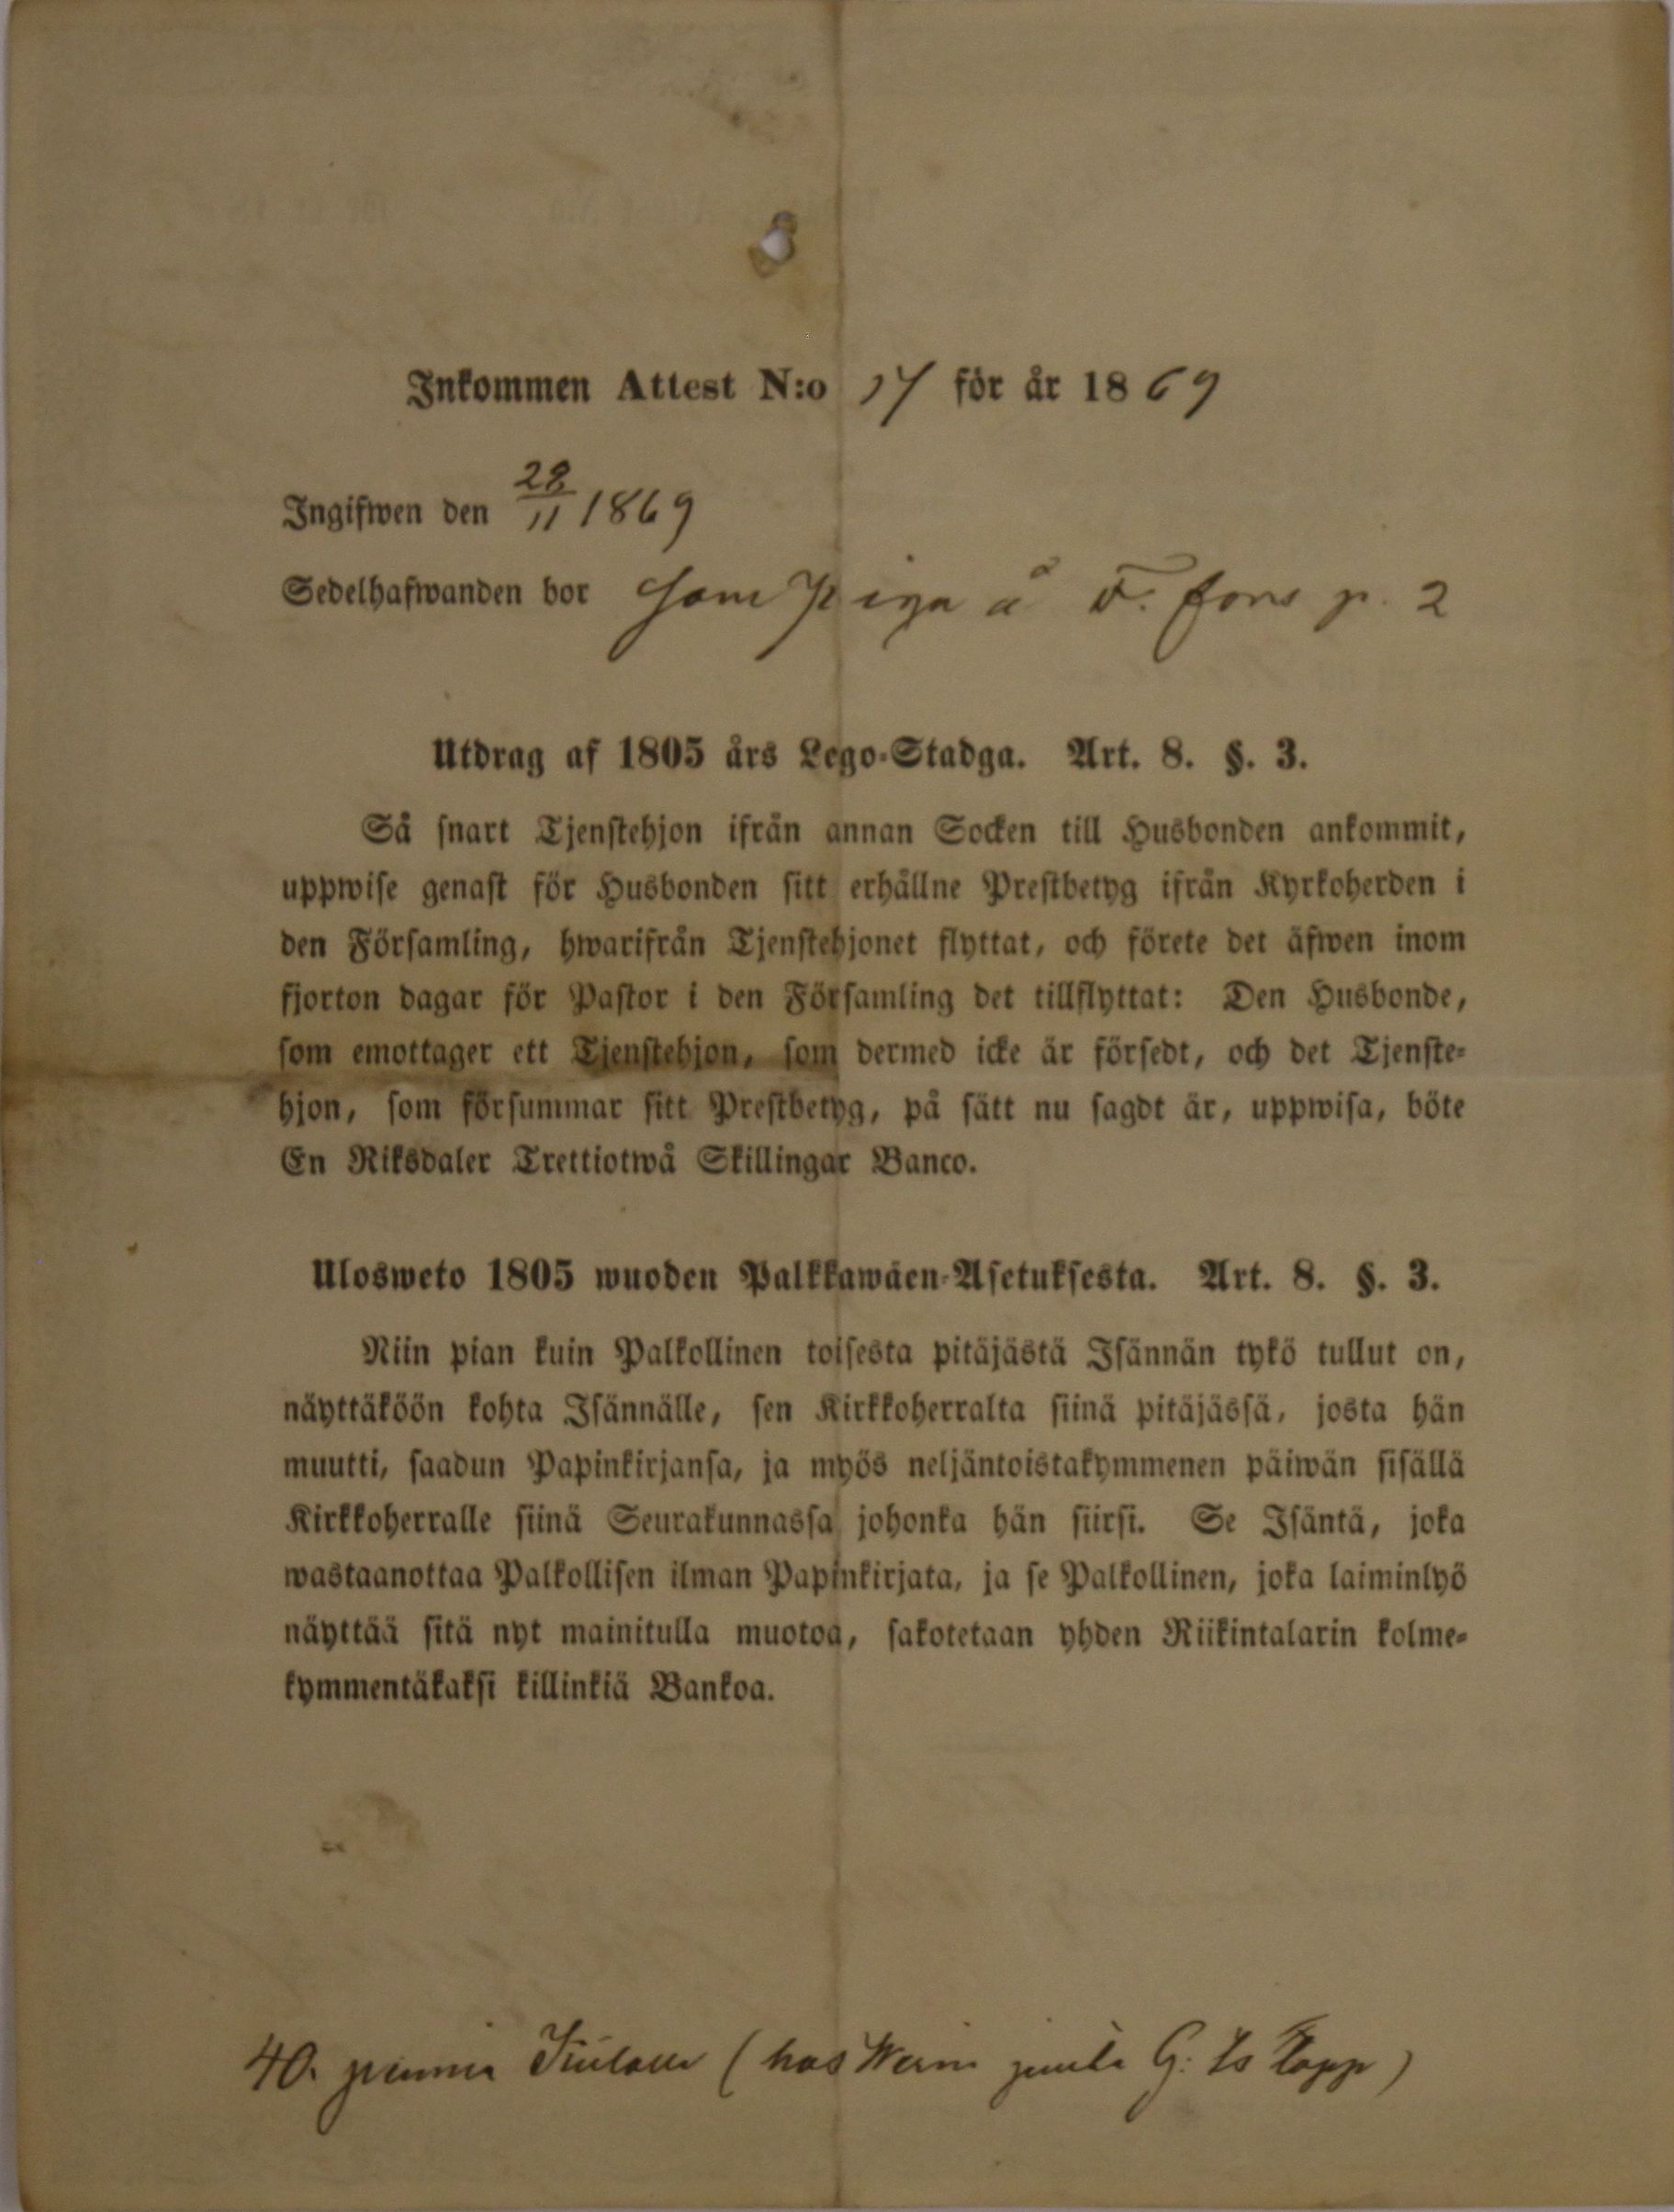 Inkommen Attest N:o 17 för år 1869
Ingifwen den 28/11 1869
Sedelhafwanden bor som piga å F. fors p. 2
Utdrag af 1805 års Lego-Stadga. Art. 8. §. 3.
Så snart Tjenstehjon ifrån annan Socken till Husbonden ankommit,
uppwise genast för Husbonden sitt erhållne Prestbetyg ifrån Kyrkoherden i
den Församling, hwarifrån Tjenstehjonet flyttat, och förete det äfwen inom
fjorton dagar för Pastor i den Församling det tillflyttat: Den Husbonde,
som emottager ett Tjenstehjon, som dermed icke är försedt, och det Tjenste-
hjon, som försummar sitt Prestbetyg, på sätt nu sagdt är, uppwisa, böte
En Riksdaler Trettiotwå Skillingar Banco.
Ulosweto 1805 wuoden Palkkawäen-Asetuksesta. Art. 8. §. 3.
Niin pian kuin Palkollinen toisesta pitäjästä Isännän tykö tullut on,
näyttäköön kohta Isännälle, sen Kirkkoherralta siinä pitäjässä, josta hän
muutti, saadun Papinkirjansa, ja myös neljäntoistakymmenen päiwän sisällä
Kirkkoherralle siinä Seurakunnassa johonka hän siirsi. Se Isäntä, joka
wastaanottaa Palkollisen ilman Papinkirjata, ja se Palkollinen, joka laiminlyö
näyttää sitä nyt mainitulla muotoa, sakotetaan yhden Riikintalarin kolme-
kymmentäkaksi killinkiä Bankoa.
40. pennia (hos G: